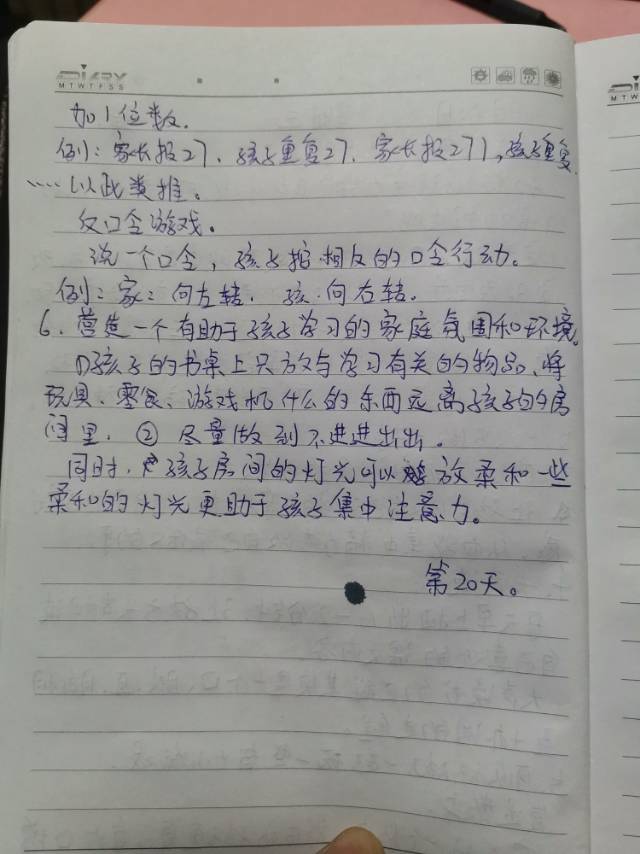 DIARY
M T W T F S S
加1位数.
例：家长报27、孩子重复27、家长报271，孩子重复.
……以此类推。
反口令游戏。
说一个口令，孩子按相反的口令行动。
例：家：向左转. 孩.向右转.
6、营造一个有助于孩子学习的家庭氛围和环境。
①孩子的书桌上只放与学习有关的物品、将
玩具、零食、游戏机什么的东西远离孩子的房
间里. ② 尽量做到不进进出出.
同时, 孩子房间的灯光可以放柔和一些
柔和的灯光更助于孩子集中注意力。
第20天。